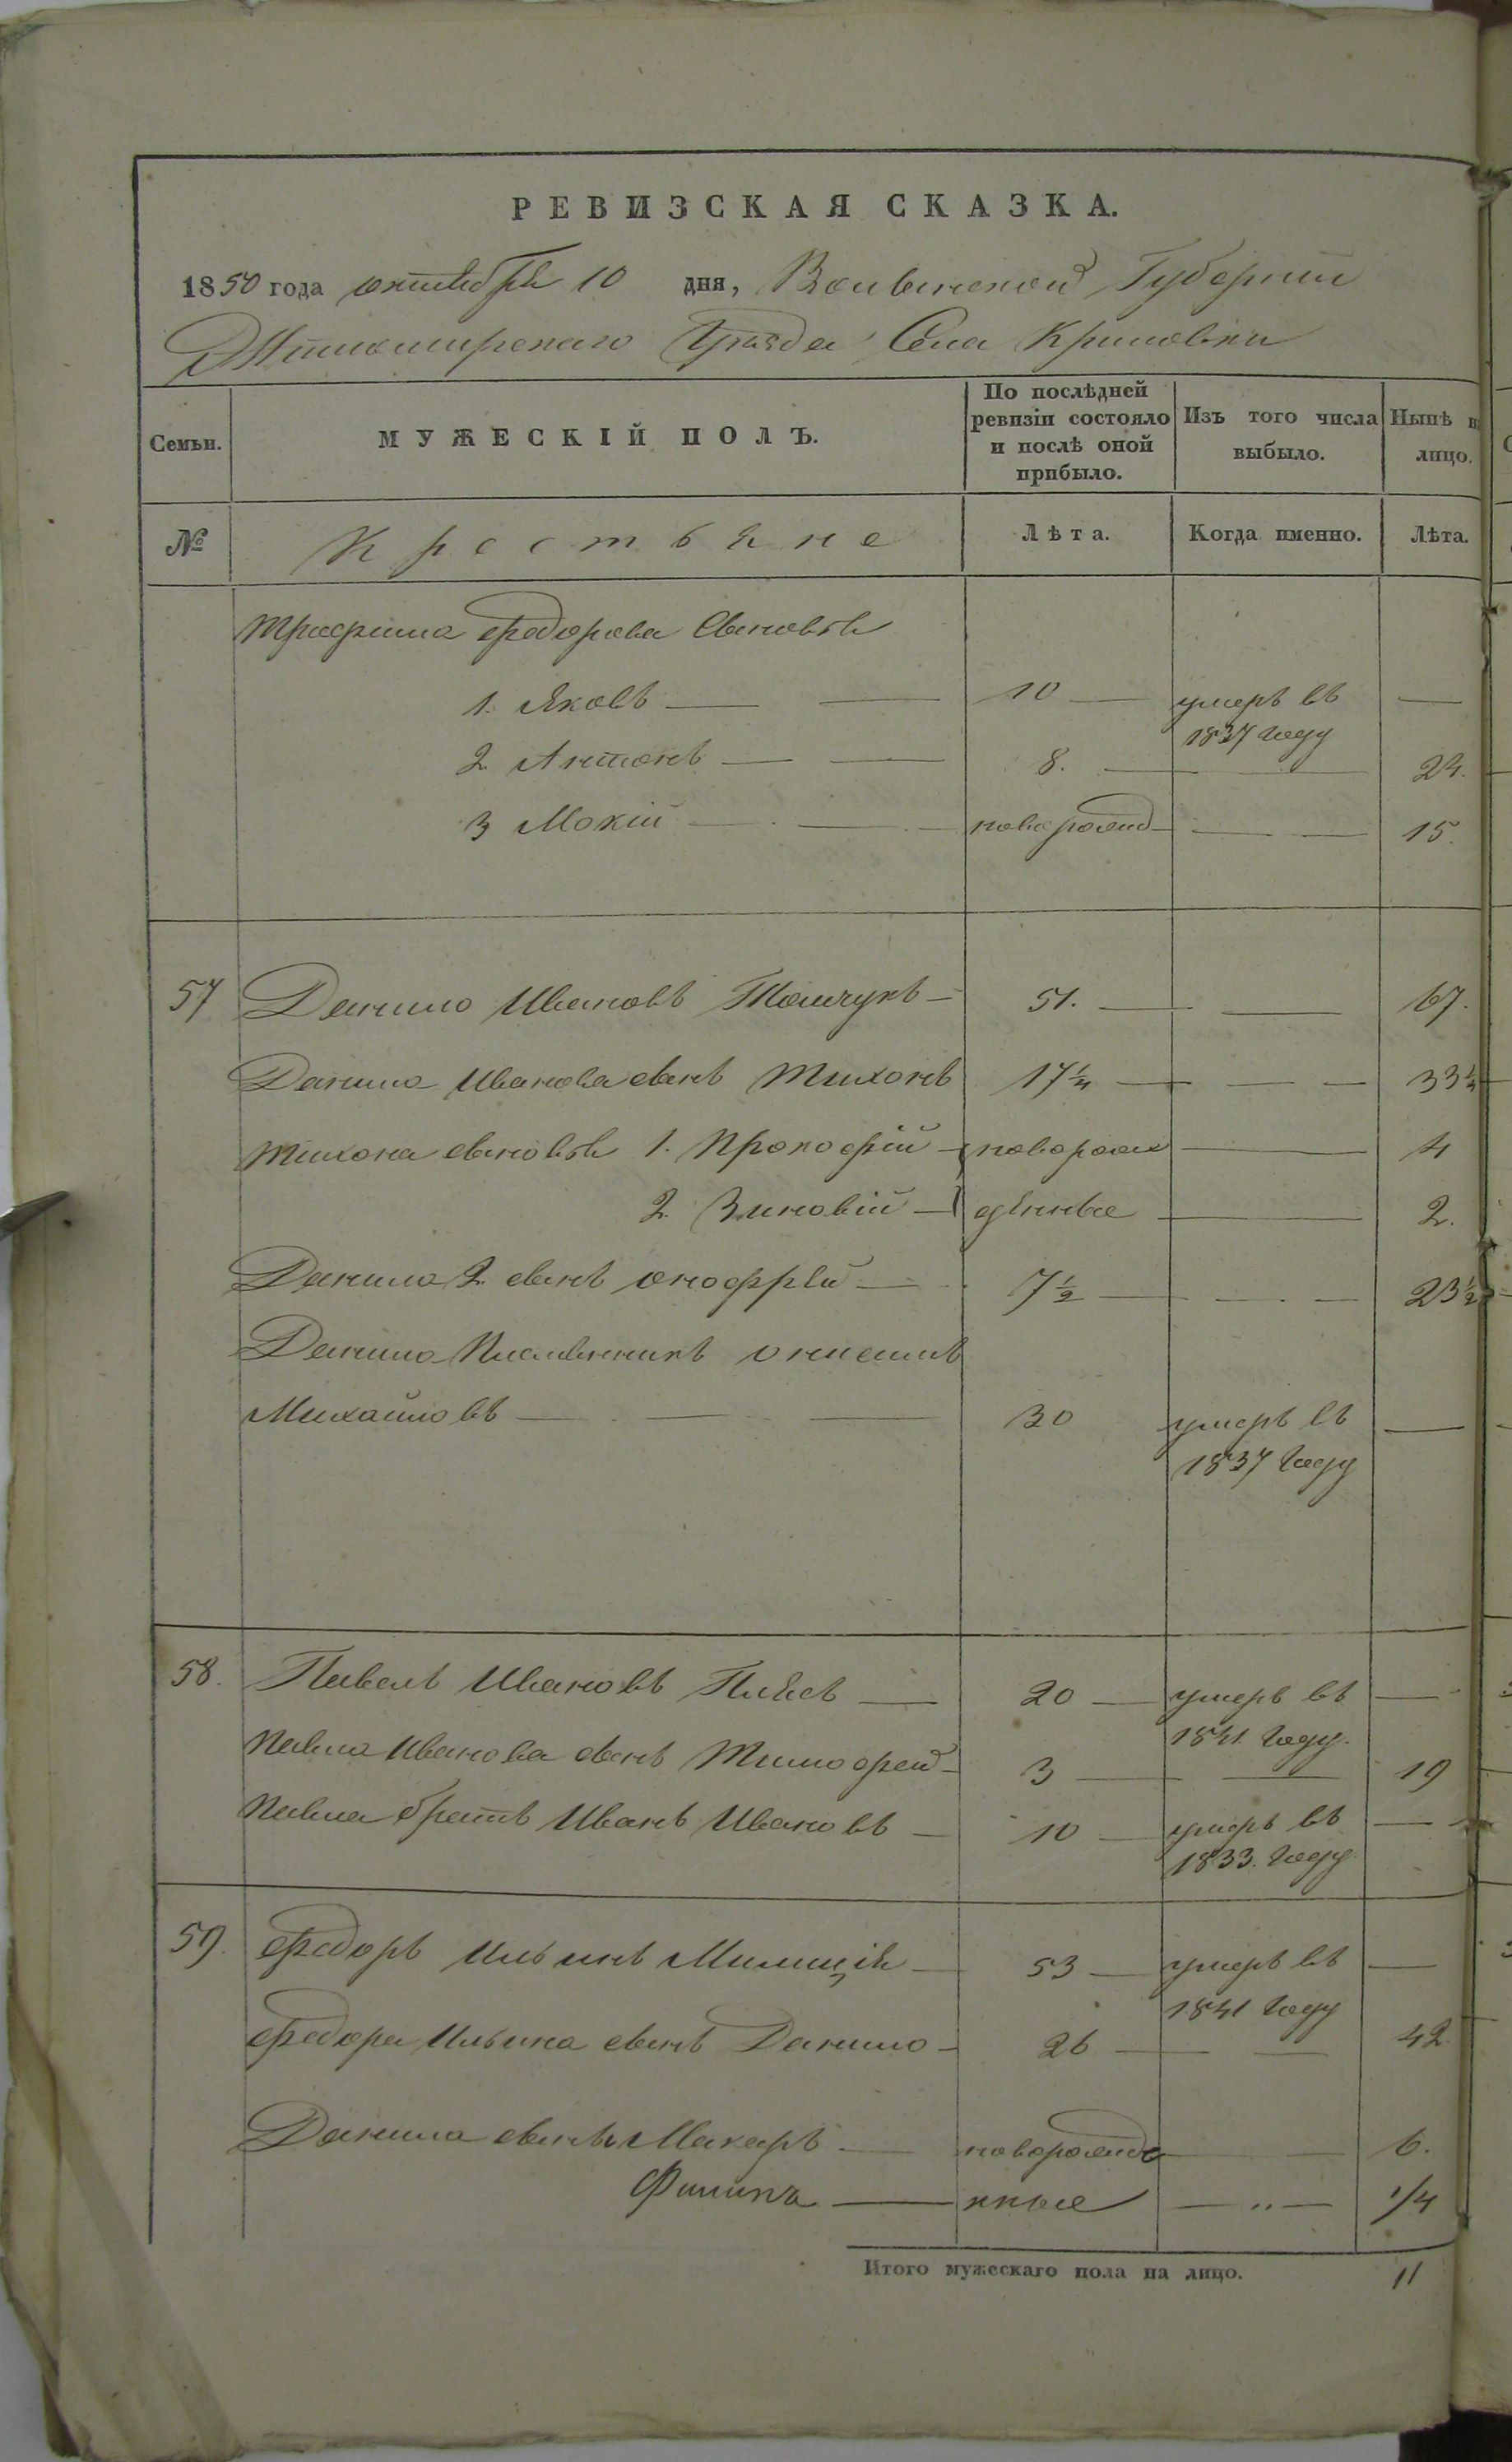 РЕВИЗСКАЯ СКАЗКА.
1850 года октября 10 дня, Волынской Губернии
Житомирскаго Уѣзда Села Криловки
Семьи. МУЖЕСКІЙ ПОЛЪ. По послѣдней ревизіи состояло и послѣ оной прибыло. Изъ того числа выбыло. Нынѣ н лицо.
№ Крестьяне Лѣта. Когда именно. Лѣта.
Трофима Федорова Сыновья
1. Яковъ — — 10 — умеръ въ —
1837 году
2. Антонъ — — 8. — — 24.
3 Мокій — — новорожд — — 15.
57 Данило Ивановъ — 51. — — 67.
Данила Иванова сынъ Тихонъ 17 1/4 — — — 33 1/4
Тихона сыновья 1. Прокофій — новорож — 4
2. Зиновій — дѣнные — 2.
Данила 2 сынъ Онофрѣй — 7 1/2 — — — 23 1/2
Данило Племянникъ
Михайловъ — — — 30 умеръ въ —
1837 году
58. Павелъ Ивановъ — 20 — умеръ въ —
1841 году.
Павла Иванова сынъ Тимофей — 3 — — 19
Павла братъ Иванъ Ивановъ — 10 — умеръ въ —
1833. году
59. Федоръ Ильинъ — 53 — умеръ въ —
1841 году
Федора Ильина сынъ Данило — 26 — — 42.
Данила сынъ Макаръ — новорожде — 6.
Филипъ — нные — „ — 1/4
Итого мужескаго пола на лицо. 11